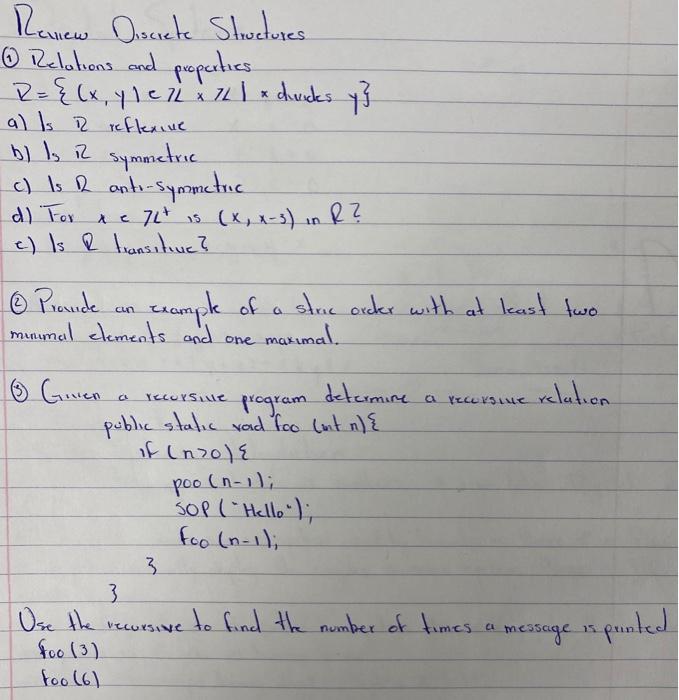 Review Discrete Structures
① Relations and properties
R = { (x, y) ∈ ℤ × ℤ | x divides y}
a) Is R reflexive
b) Is R symmetric
c) Is R anti-symmetric
d) For x ∈ ℤ⁺ is (x, x-3) in R?
e) Is R transitive?
② Provide an example of a stric order with at least two
minimal elements and one maximal.
③ Given a recursive program determine a recursive relation
public static void foo (int n) {
if (n>0) {
poo (n-1);
SOP ("Hello");
foo (n-1);
}
}
Use the recursive to find the number of times a message is printed
foo (3)
foo (6)